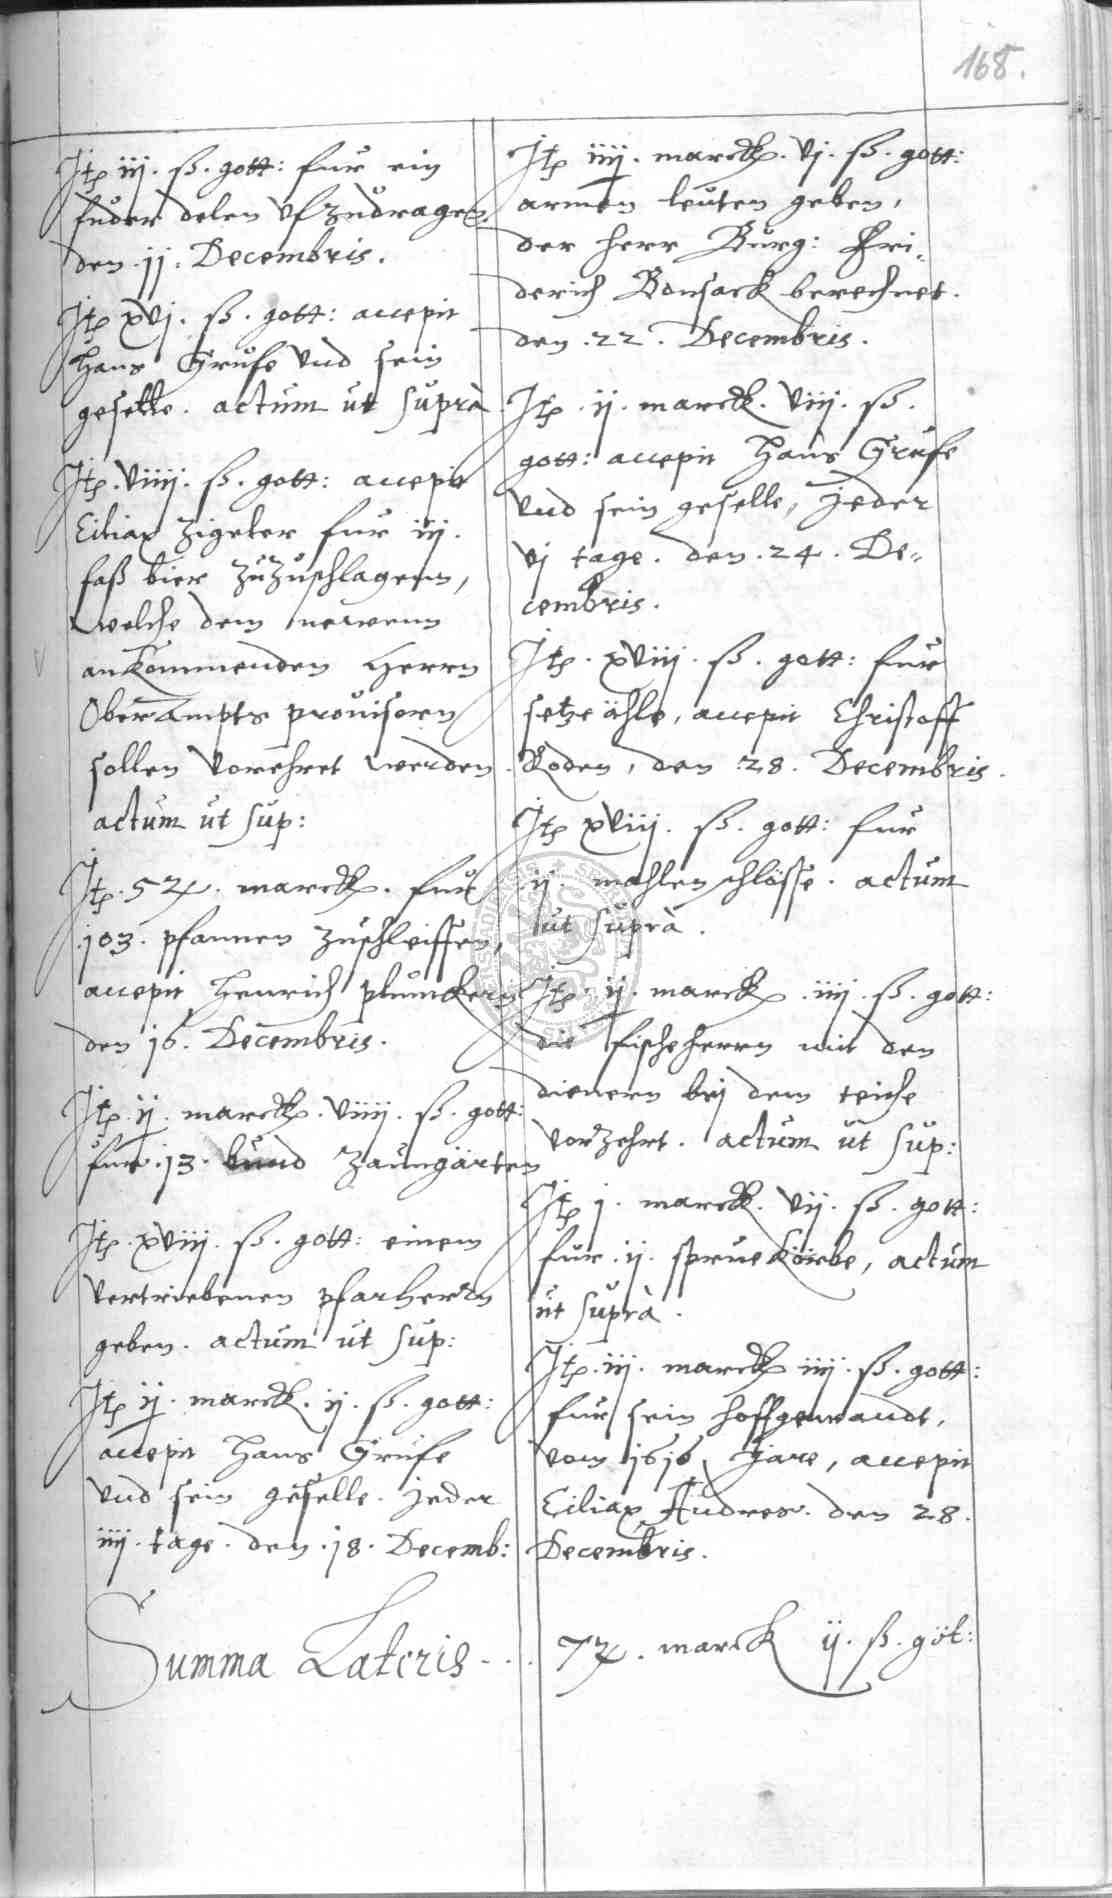 168.
Itp iij. ß. gott: fur ein
fuder delen ufzudragen
den .11. Decembris.
Itp xvj. ß. gott: accepit
Hans Grufe und sein
geselle. actum ut suprà
Itp. viiij. ß. gott: accepit
Ciliax Zigeler fur iij.
faß bier zuzuschlagenn,
welche dem newenn
ankommenden Herrn
Oberampts provisorn
sollen vorehret werden.
actum ut sup:
Itp. marck. fur
.103. pfannen zuschleiffen,
accepit Henrich plunckern
den 16. Decembris.
Itp. ij. marck. viiij. ß. gott:
fur .13. bund zaungärten
Itp. xviij. ß. gott: einem
vertriebenen pfarherrn
geben. actum ut sup:
Itp ij. marck. ij. ß. gott:
accepit Hans Grufe
und sein geselle. jeder
iiij. tage. den .18. Decemb:
Itp iiij. marck. vj. ß. gott:
armen leuten geben,
der herr Burg: Fri-
derich Bonsack berechnet.
den .22. Decembris.
Itp. ij. marck. viij. ß.
gott: accepit Hans Grufe
und sein geselle, jeder
vj tage. den .24. De-
cembris.
Itp. xviij. ß. gott: fur
setze ähle, accepit Christoff
Roden, den .28. Decembris.
Itp xviij. ß. gott: fur
ij. mahlenschlösse. actum
ut suprà.
Itp. ij. marck. iiij. ß. gott:
die fischeherrn mit den
dienern bej dem teiche
vorzehrt. actum ut sup:
Itp j. marck. vij. ß. gott:
fur .ij. spruekörbe, actum
ut suprà.
Itp. iij. marck iiij. ß. gott:
fur sein hoffgewandt,
vom 1616. Jare, accepit
Ciliax Andres. den 28.
Decembris.
Summa Lateris . . . marck ij. ß. got: